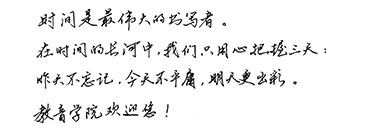 时间是最伟大的书写者。
在时间的长河中,我们只用心把握三天:
昨天不忘记,今天不平庸,明天更出彩。
教育学院欢迎您!